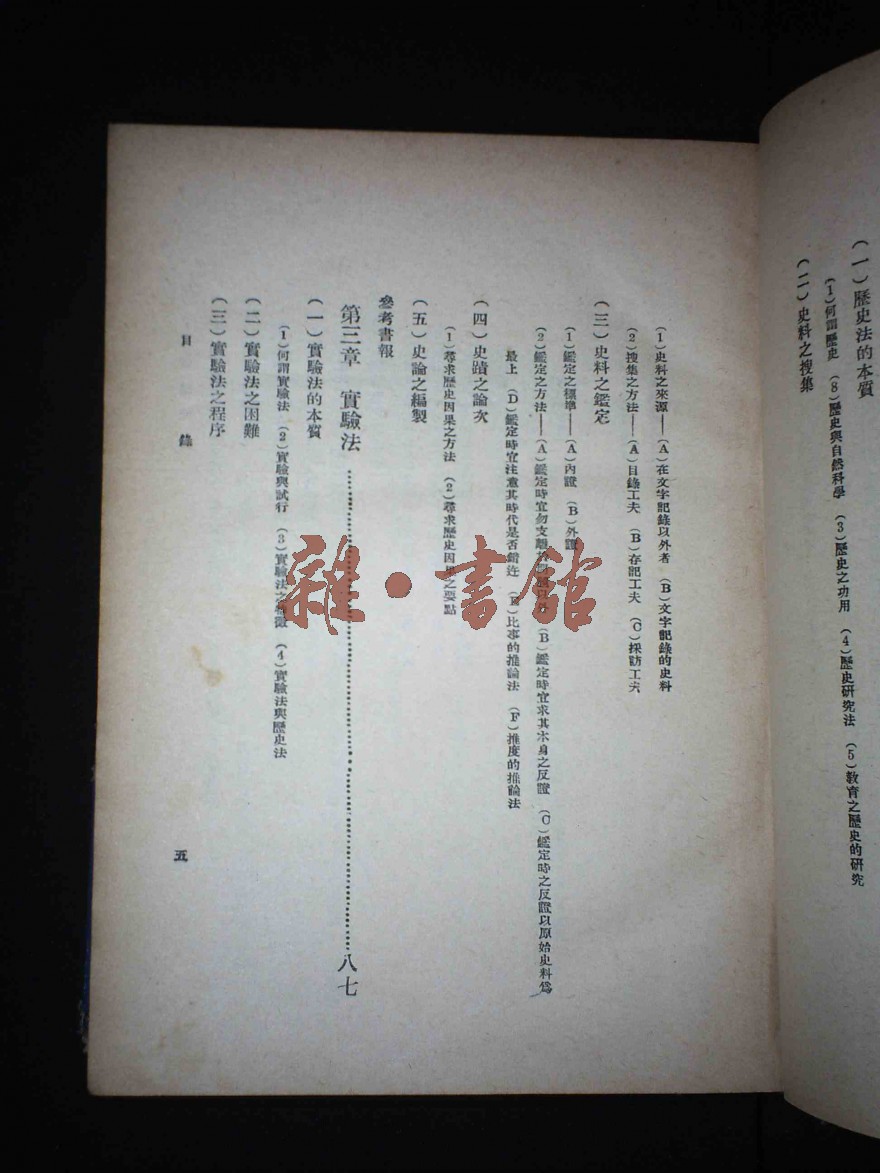 （一）歷史法的本質
（1）何謂歷史　（8）歷史與自然科學　（3）歷史之功用　（4）歷史研究法　（5）教育之歷史的研究
（二）史料之搜集
（1）史料之來源——（A）在文字記錄以外者　（B）文字記錄的史料
（2）搜集之方法——（A）目錄工夫　（B）存記工夫　（C）採訪工夫
（三）史料之鑑定
（1）鑑定之標準——（A）內證　（B）外證
（2）鑑定之方法——（A）鑑定時宜勿支離以外　（B）鑑定時宜求其本身之反證　（C）鑑定時之反證以原始史料爲
最上　（D）鑑定時宜注意其時代是否錯迕　（E）比事的推論法　（F）推度的推論法
（四）史蹟之論次
（1）尋求歷史因果之方法　（2）尋求歷史因果之要點
（五）史論之編製
參考書報
第三章　實驗法……八七
（一）實驗法的本質
（1）何謂實驗法　（2）實驗與試行　（3）實驗法之特徵　（4）實驗法與歷史法
（二）實驗法之困難
（三）實驗法之程序
目錄
五
雜·書館